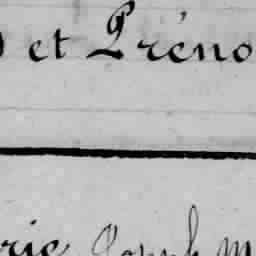 et Préno
rie Joseph M